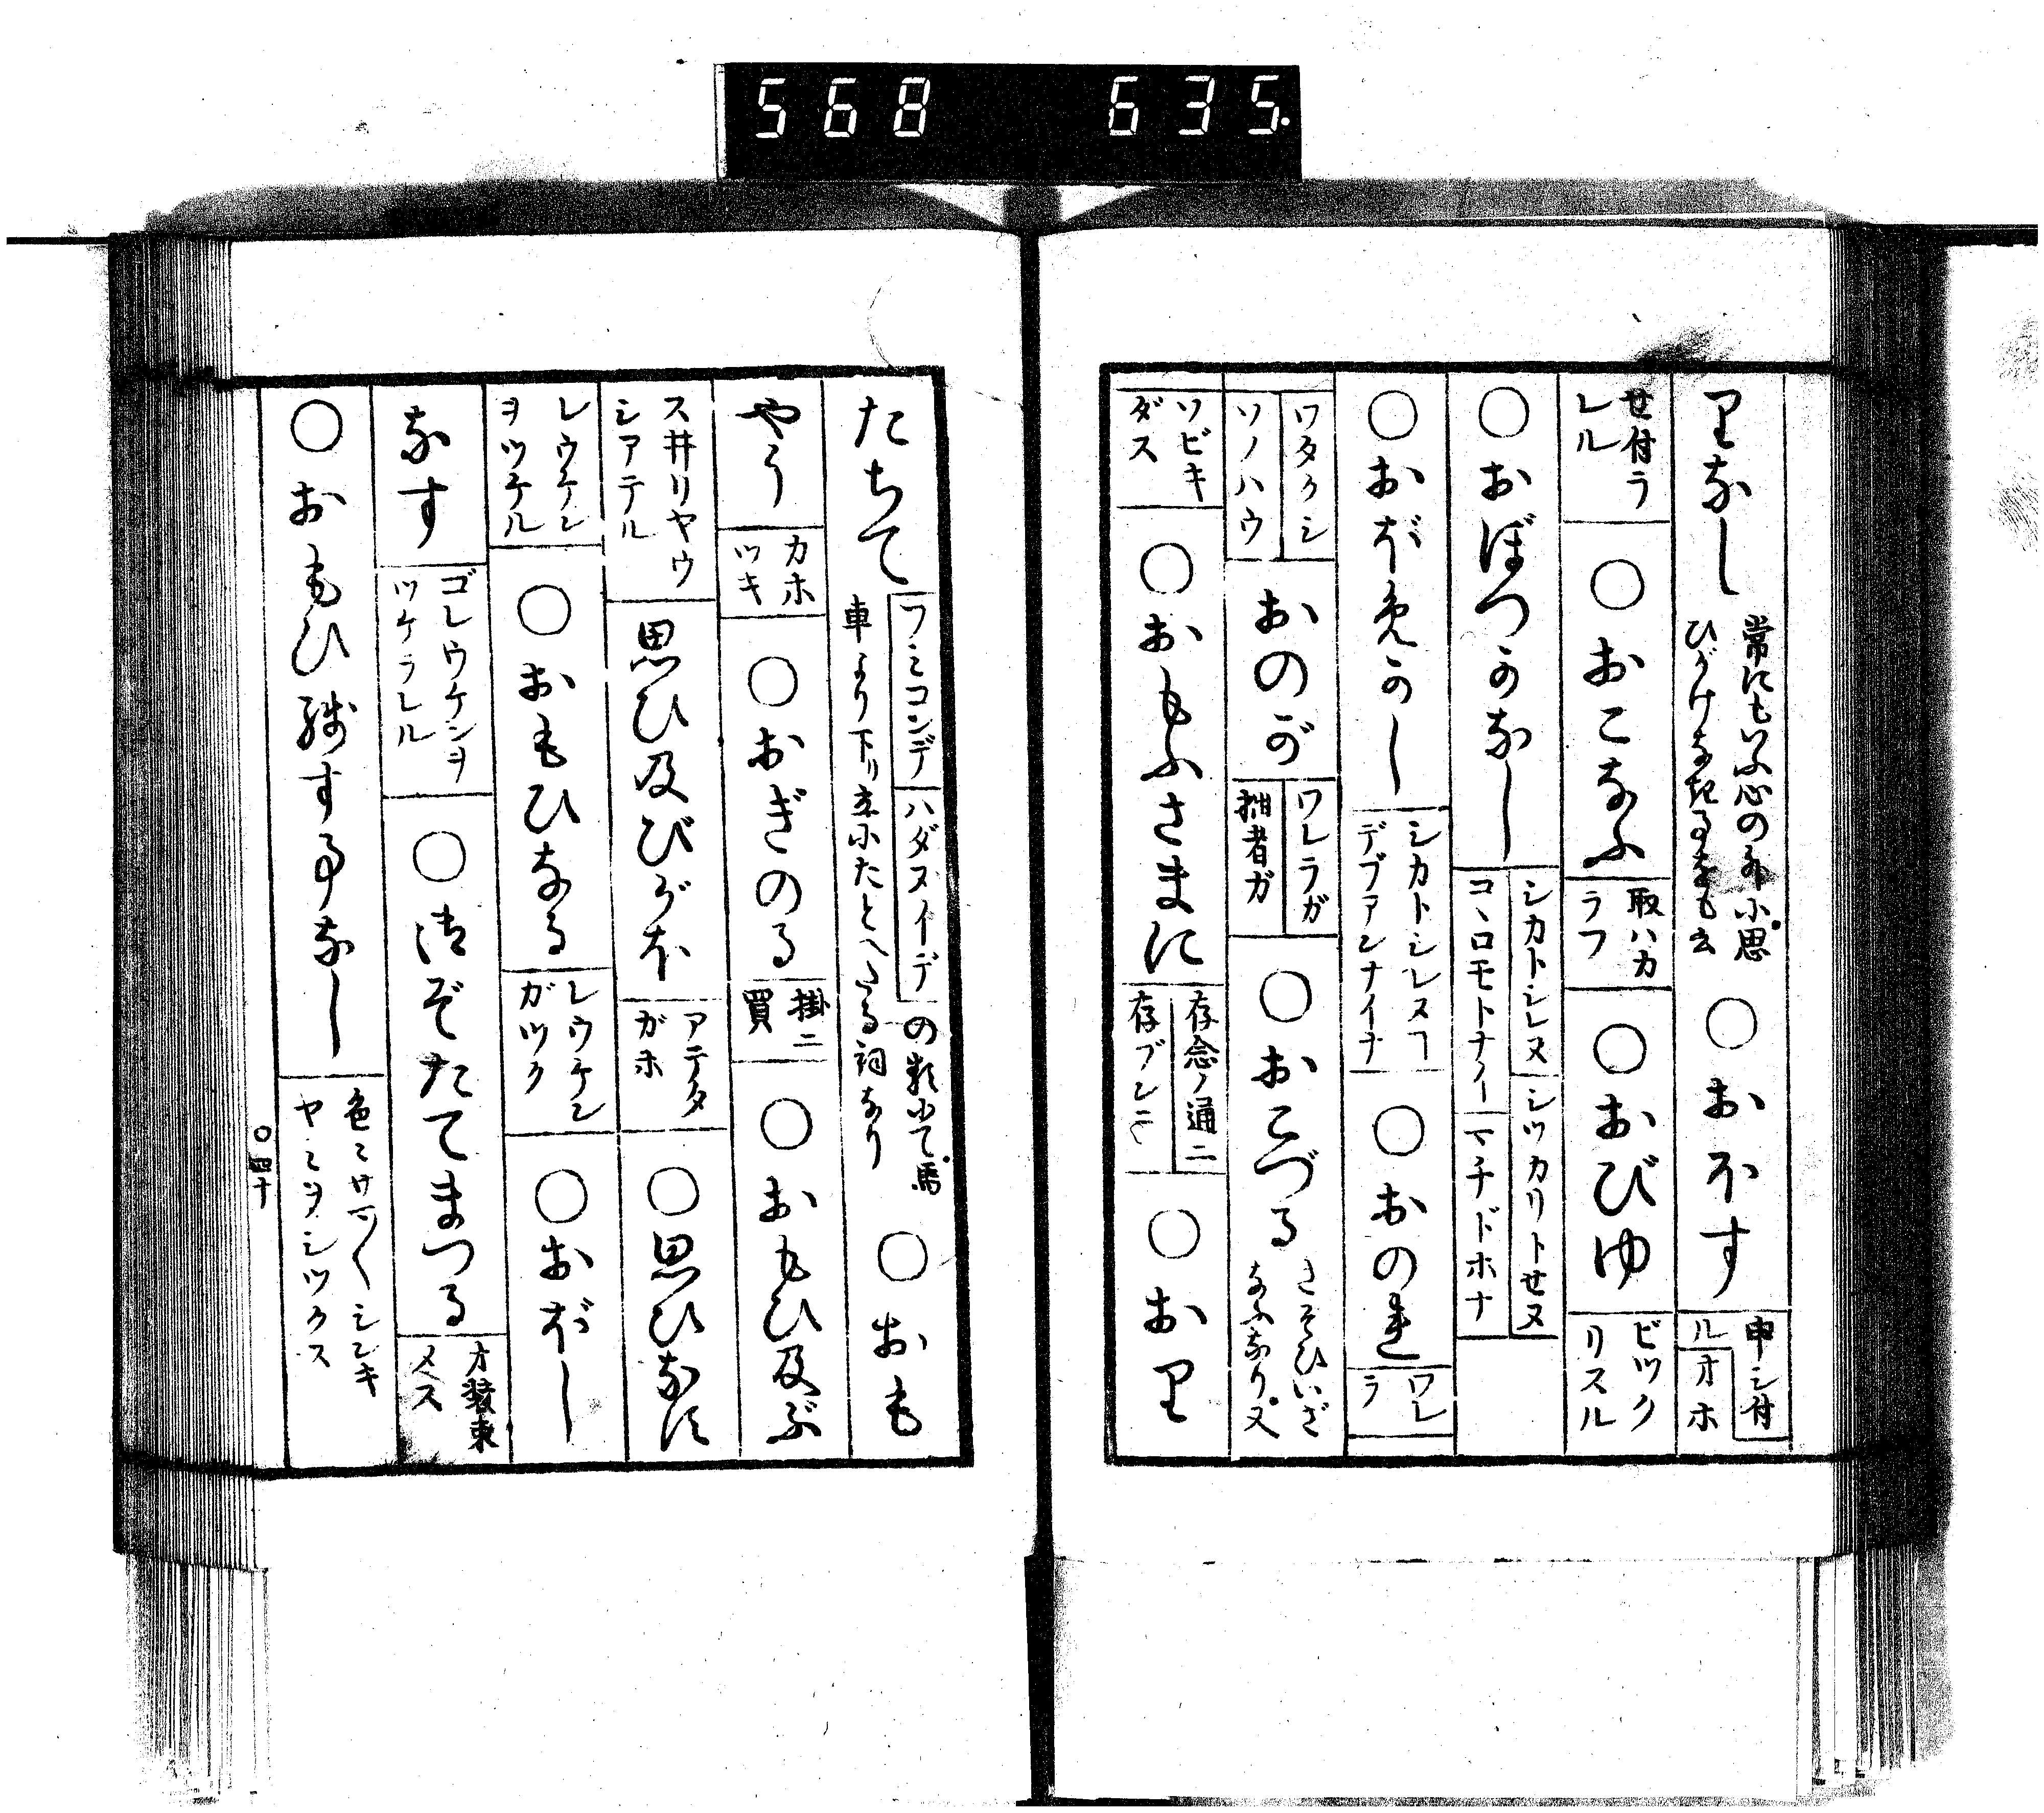 568 635
りなし 常にもいふ心の外に思
ひがけなき起るをも云 ○おほす 申シ付
ル オホ
せ付ラ
レル ○おこなふ 取ハカ
ラフ ○おびゆ ビツク
リスル
○おぼつかなし シカトシレヌ シツカリトせヌ
コヽロモトナイ マチドホナ
○おぼめかし シカトシレヌ
デブアンナイナ ○おのれ ワレ
ラ
ワタクシ
ソノハウ おのが ワレラガ
拙者ガ ○おこづる さそひいざ
なふなり。又
ソビキ
ダス ○おもふさまに 存念ノ通ニ
存ブンニ ○おり
たちて フミコンデ ハダヌイデ の類にて。馬
車より下り立にたとへたる詞なり ○おも
やう カホ
ツキ ○おぎのる 掛ニ
買 ○おもひ及ぶ
ス井リヤウ
シアテル 思ひ及びがほ アテタ
ガホ ○思ひなす
レウケン
ヲツケル ○おもひなる レウケン
ガツク ○おぼし
なす ゴレウケンヲ
ツケラレル ○御ぞたてまつる オ装束
メス
○おもひ残す事なし 色ミサマ〴〵シンキ
ヤミヲシツクス
○四十